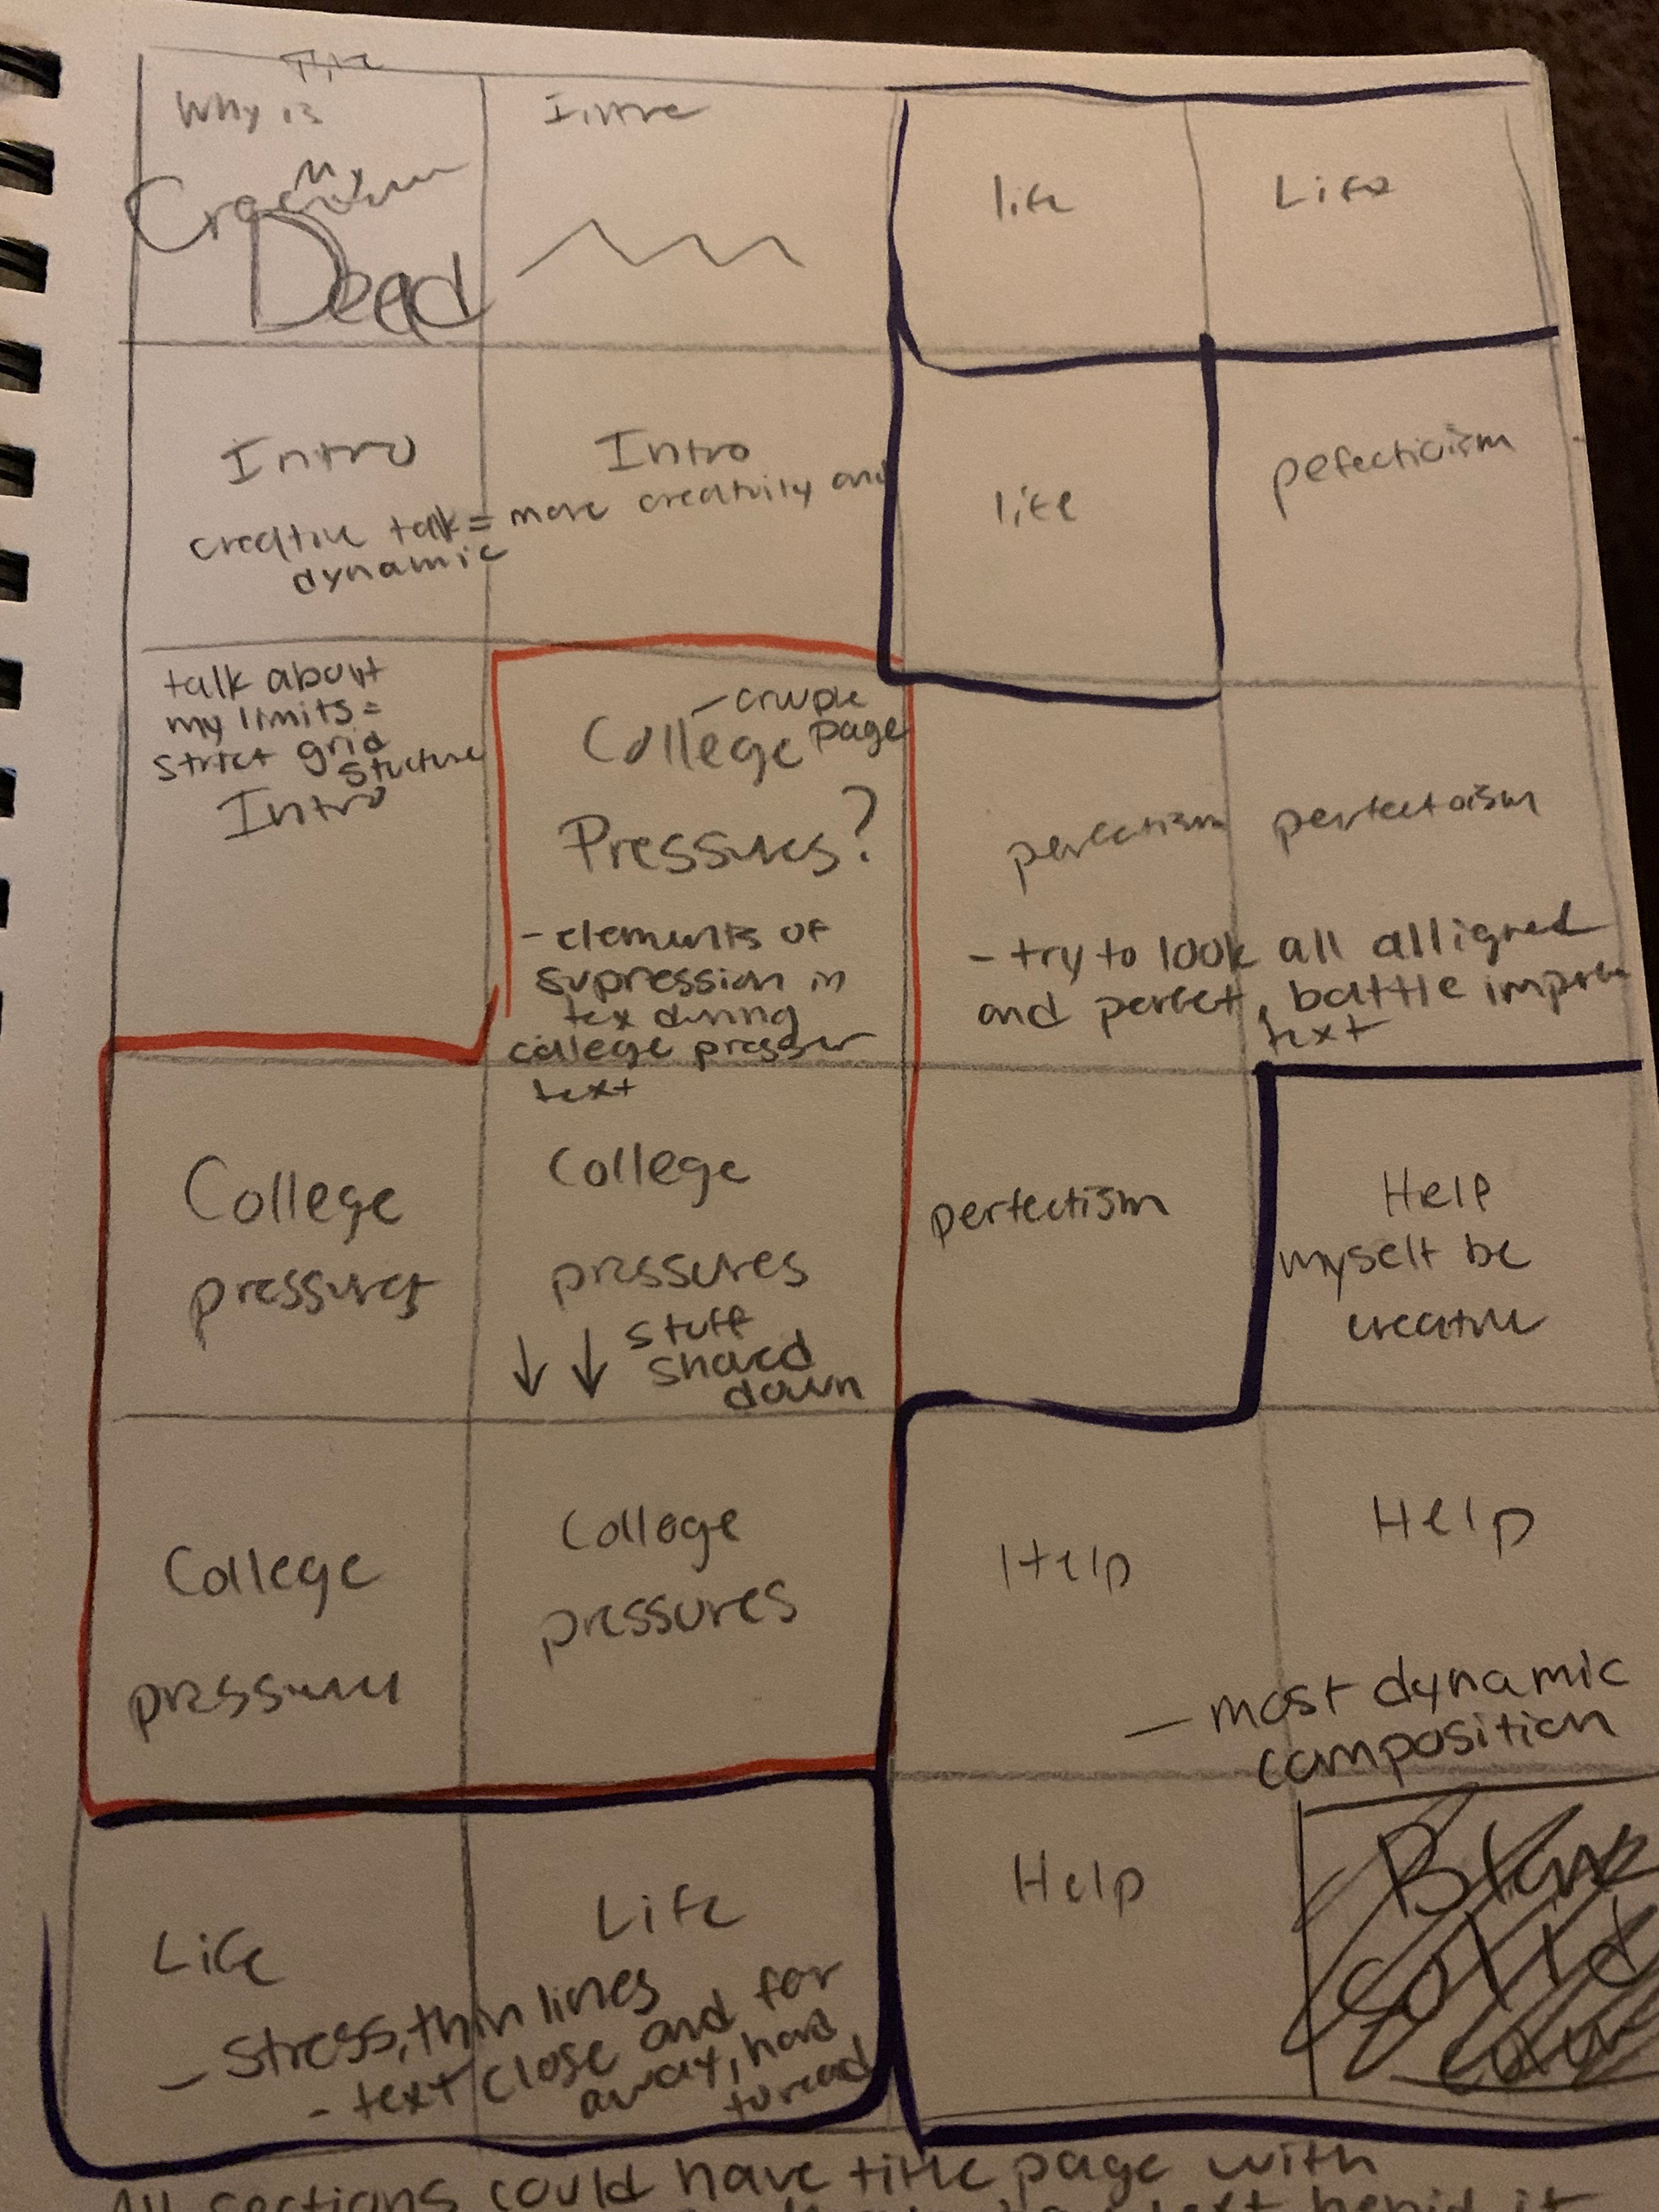 Why is
My
Dead
Intro
creative talk = more creativity and
dynamic
Intro
talk about
my limits =
strict grid
stucture
Intro
College
page
Pressures?
- elements of
supression in
tex during
college presser
text
College
pressures
College
pressures
↓ ↓ stuff
down
College
College
pressures
Life
Life
- stress, thin lines
- text close and far
away, hard
to read
life
Life
life
pefecticism
perfectoism
- try to look all alligned
and perfect, battle
text
perfectism
Help
myself be
creative
Help
Help
- most dynamic
composition
Help
Solid
All sections could have title page with
text